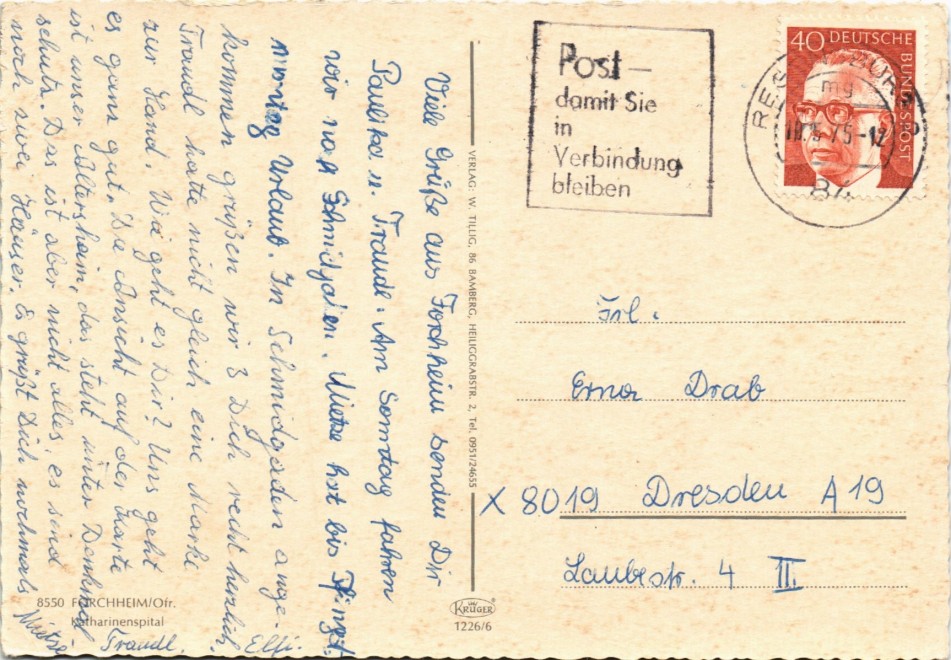 Viele Grüße aus Forchheim senden Dir
Paulike. u. Traudl. Am Sonntag fahren
wir nach Schmidgaden. Mietze hat bis Pfingst.
montag Urlaub. In Schmidgaden ange-
kommen grüßen wir 3 Dich recht herzlich.
Traudl hatte nicht gleich eine Marke
zur Hand. Wie geht es Dir? Uns geht
es ganz gut. Die Ansicht auf der Karte
ist unser Altersheim, das steht unter Denkmal
schutz. Das ist aber nicht alles, es sind
noch zwei Häuser. Es grüßt Dich nochmals
Mietze
Traudl. Elfi.
8550 FORCHHEIM/Ofr.
Katharinenspital
VERLAG: W. TILLIG, 86 BAMBERG, HEILIGGRABSTR. 2, Tel. 0951/24655
KRÜGER
1226/6
Post –
damit Sie
in
Verbindung
bleiben
40 DEUTSCHE
BUNDESPOST
mg
84
Frl.
Erna Drab
X 8019 Dresden A 19
Laubestr. 4 II.